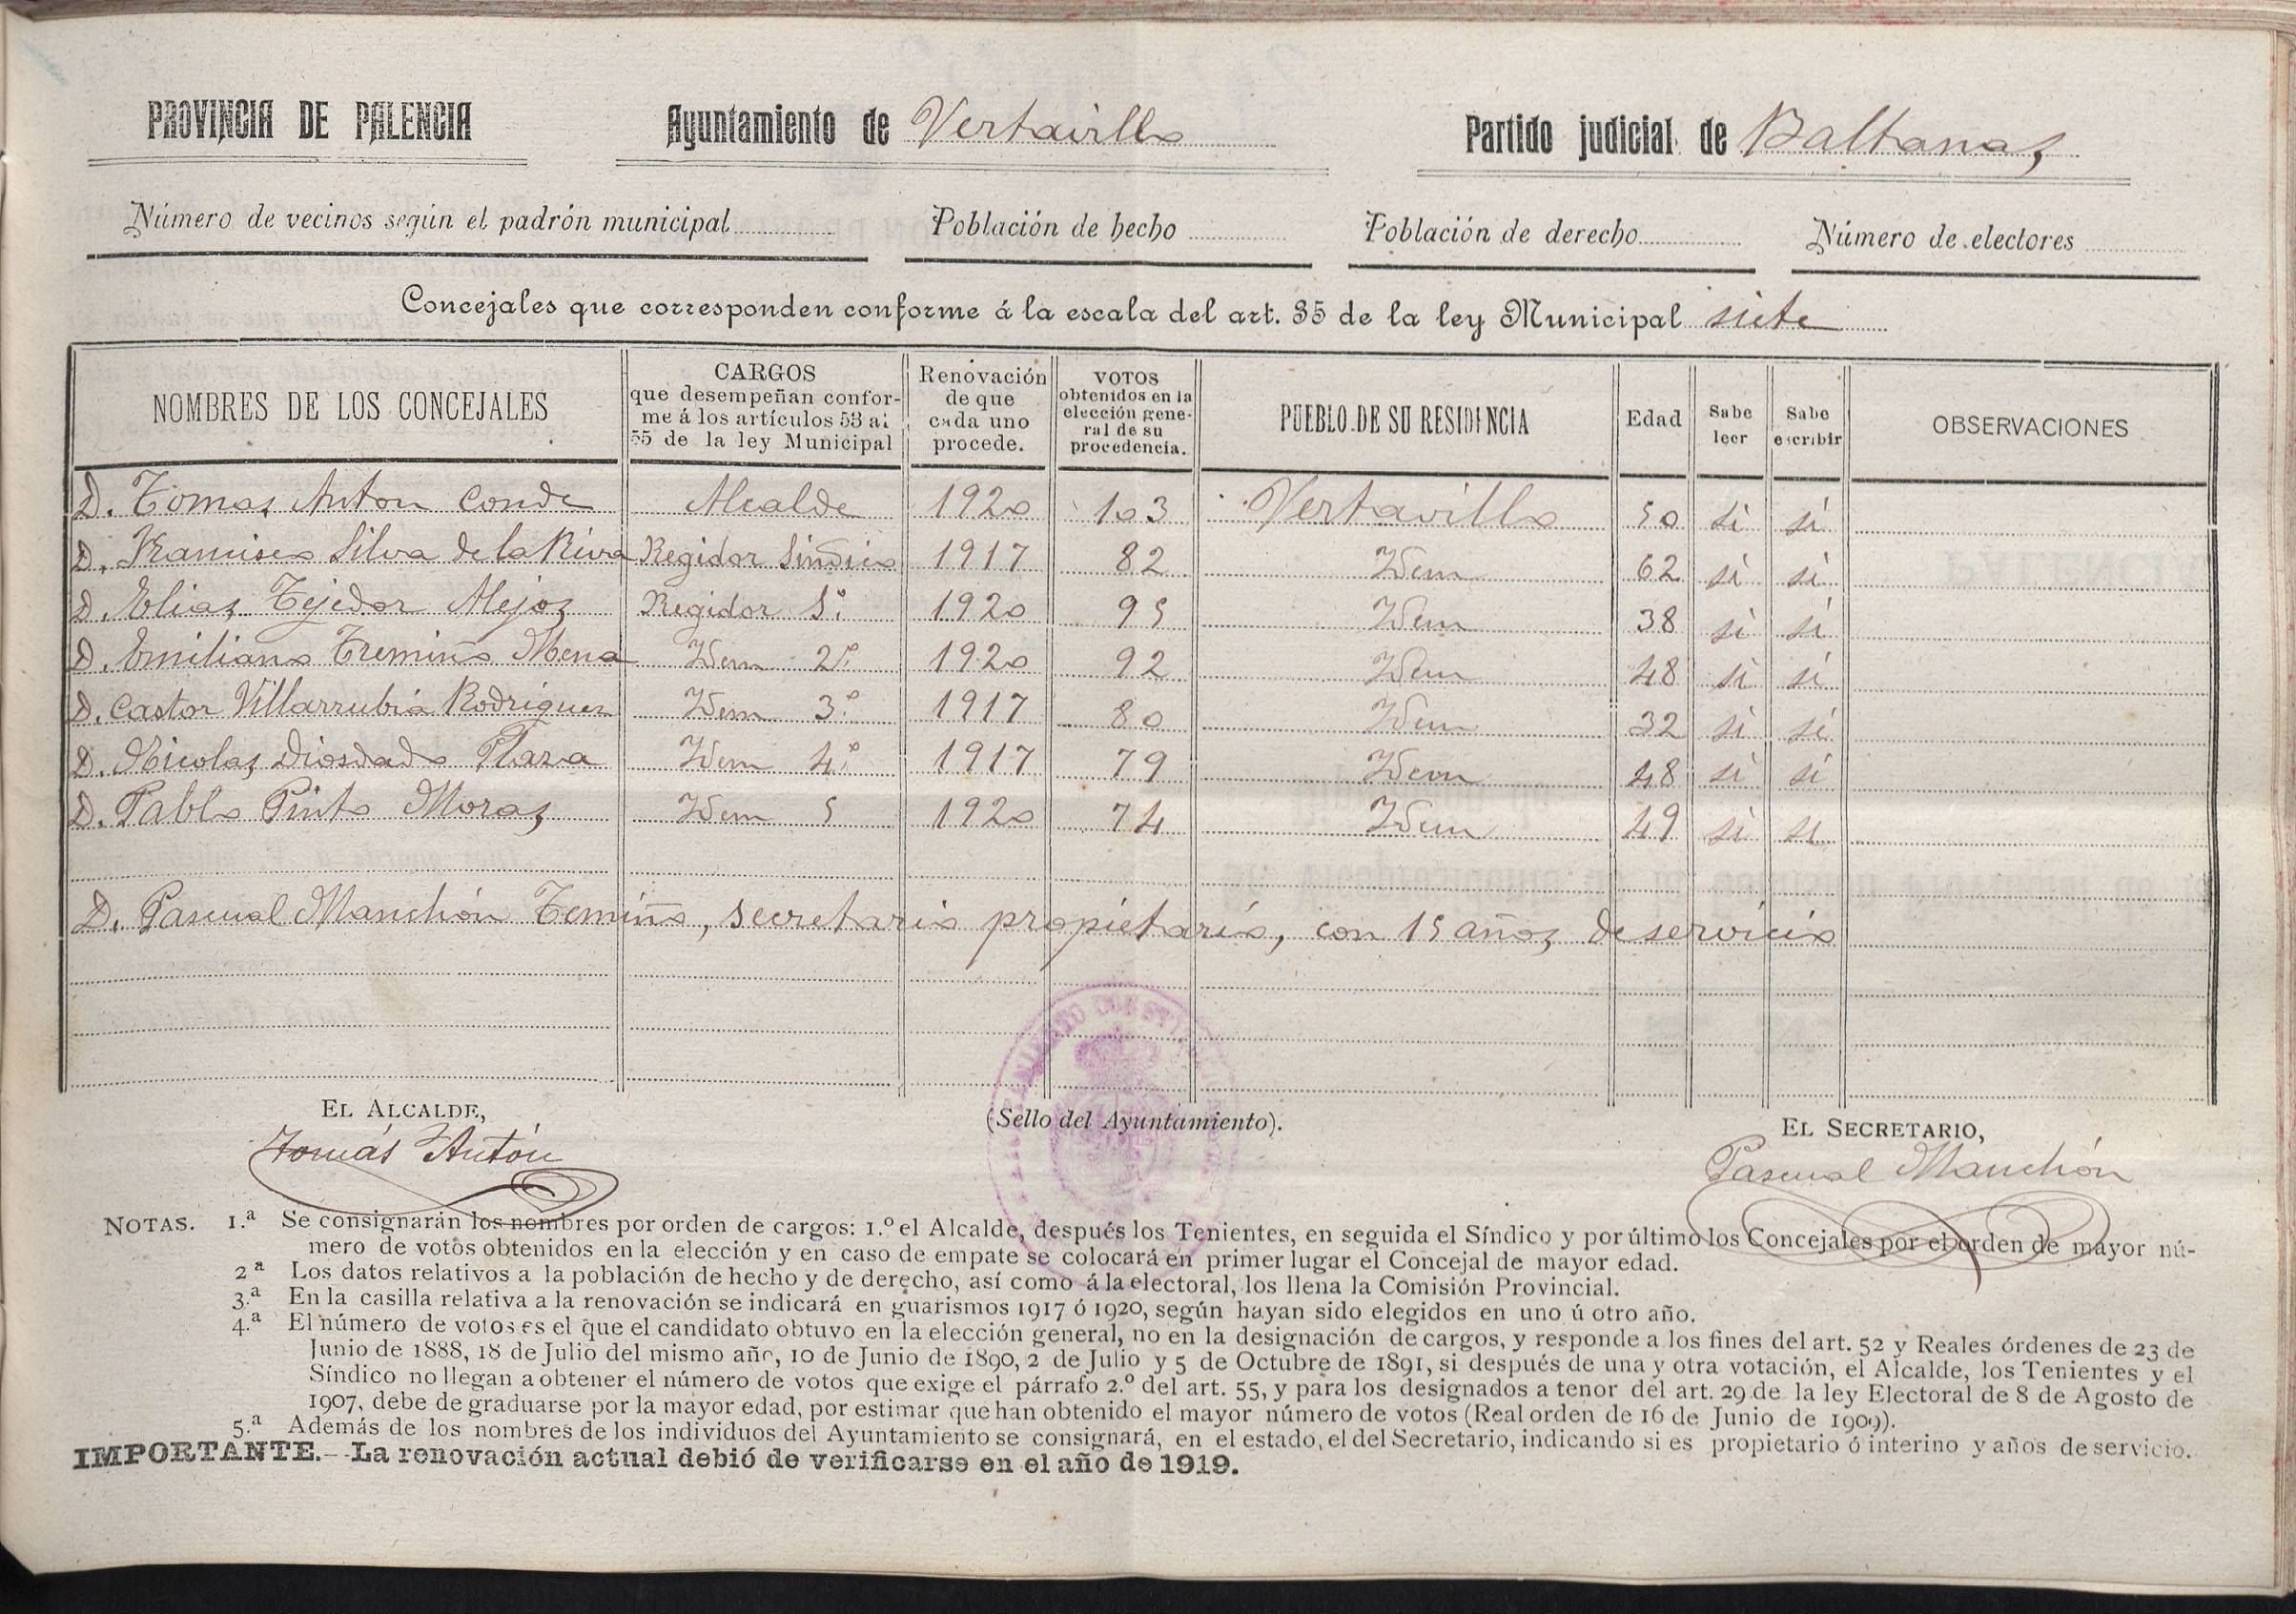 PROVINCIA DE PALENCIA Ayuntamiento de Vertavillo Partido judicial de Baltanas
Número de vecinos según el padrón municipal Población de hecho Población de derecho Número de electores
Concejales que corresponden conforme á la escala del art. 35 de la ley Municipal siete
NOMBRES DE LOS CONCEJALES
CARGOS
que desempeñan confor-
me á los artículos 53 al
55 de la ley Municipal
Renovación
de que
cada uno
procede.
VOTOS
obtenidos en la
elección gene-
ral de su
procedencia.
PUEBLO DE SU RESIDENCIA
Edad
Sabe
leer
Sabe
escribir
OBSERVACIONES
D. Tomas Anton Conde Alcalde 1920 103 Vertavillo 50 si si
D. Francisco Silva de la Riva Regidor Sindico 1917 82 Idem 62 si si
D. Elias Tejedor Alejos Regidor 1º 1920 95 Idem 38 si si
D. Emiliano Tremiño Mena Idem 2º 1920 92 Idem 48 si si
D. Castor Villarrubia Rodriguez Idem 3º 1917 80 Idem 32 si si
D. Nicolas Diosdado Plaza Idem 4º 1917 79 Idem 48 si si
D. Pablo Pinto Moras Idem 5 1920 74 Idem 49 si si
D. Pascual Manchón Temiño, secretario propietario, con 15 años de servicio
EL ALCALDE,
Tomás Antón
(Sello del Ayuntamiento).
EL SECRETARIO,
Pascual Manchón
NOTAS. 1.ª Se consignarán los nombres por orden de cargos: 1.º el Alcalde, después los Tenientes, en seguida el Síndico y por último los Concejales por el orden de mayor nú-
mero de votos obtenidos en la elección y en caso de empate se colocará en primer lugar el Concejal de mayor edad.
2ª Los datos relativos a la población de hecho y de derecho, así como á la electoral, los llena la Comisión Provincial.
3.ª En la casilla relativa a la renovación se indicará en guarismos 1917 ó 1920, según hayan sido elegidos en uno ú otro año.
4.ª El número de votos es el que el candidato obtuvo en la elección general, no en la designación de cargos, y responde a los fines del art. 52 y Reales órdenes de 23 de
Junio de 1888, 18 de Julio del mismo año, 10 de Junio de 1890, 2 de Julio y 5 de Octubre de 1891, si después de una y otra votación, el Alcalde, los Tenientes y el
Síndico no llegan a obtener el número de votos que exige el párrafo 2.º del art. 55, y para los designados a tenor del art. 29 de la ley Electoral de 8 de Agosto de
1907, debe de graduarse por la mayor edad, por estimar que han obtenido el mayor número de votos (Real orden de 16 de Junio de 1909).
5.ª Además de los nombres de los individuos del Ayuntamiento se consignará, en el estado, el del Secretario, indicando si es propietario ó interino y años de servicio.
IMPORTANTE.--La renovación actual debió de verificarse en el año de 1919.